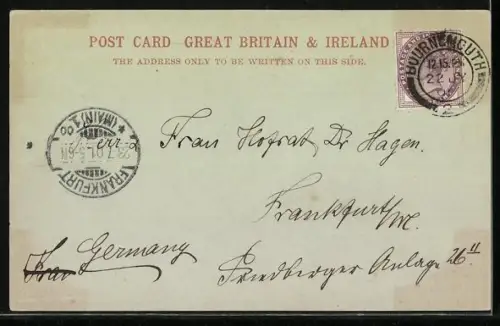 POST CARD GREAT BRITAIN & IRELAND
THE ADDRESS ONLY TO BE WRITTEN ON THIS SIDE.
BOURNEMOUTH
22 JY
FRANKFURT (MAIN) 1
23.7.01. 5-6N
Frau Hofrat Dr Hagen.
Frankfurt a/M.
Germany
Friedberger Anlage 26 II